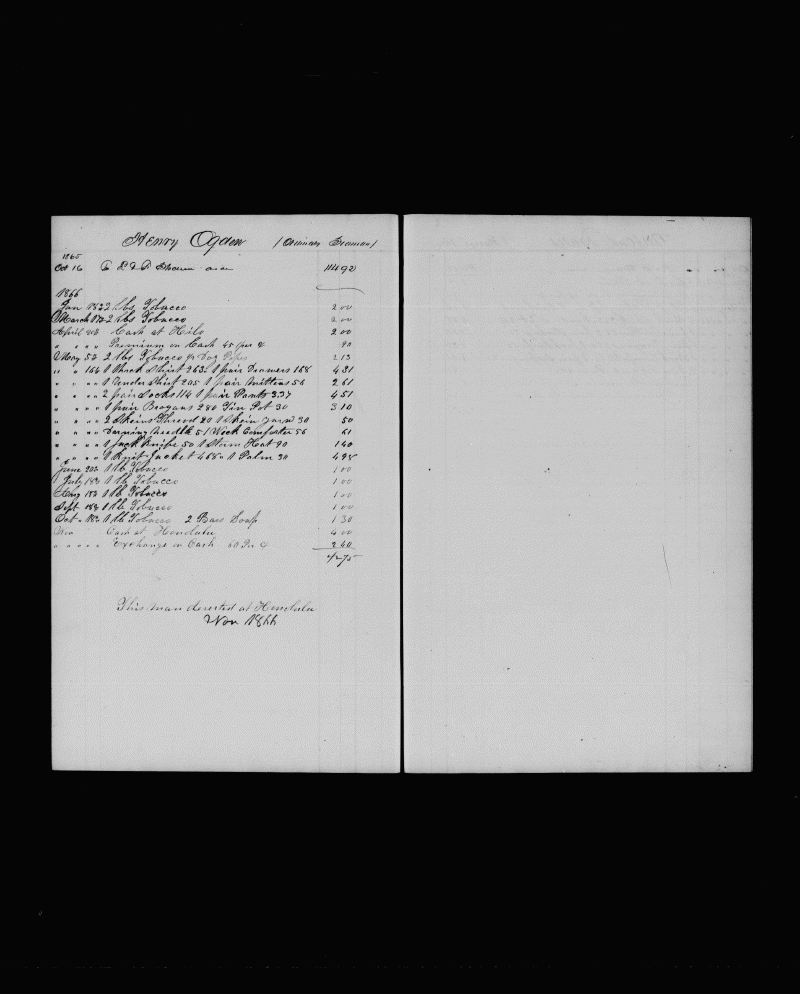 Henry Ogden (Ordinary Seaman)
1865
Oct 16 114 92
1866
Jan 18 2 lbs Tobacco 2 00
March 17 2 lbs Tobacco 2 00
April Cash at Hilo 2 00
" " " " Premium on Cash 45 per c 90
May 5th 2 lbs Tobacco 2 13
" " 16th 1 Thick Shirt 263 1 pair Drawers 168 4 31
" " " " 1 Under Shirt 205 1 pair Mittens 56 2 61
" " " " 2 pair Socks 114 1 pair Pants 337 4 51
" " " " 1 pair Brogans 280 Tin Pot 30 3 10
" " " " 2 Skeins Thread 20 1 Skein Yarn 30 50
" " " " Darning Needle 5 1 Neck Comforter 56 61
" " " " 1 Jack Knife 50 1 Storm Hat 90 1 40
" " " " 1 Knit Jacket 468 1 Palm 30 4 98
June 20th 1 lb Tobacco 1 00
July 18th 1 lb Tobacco 1 00
Aug 18th 1 lb Tobacco 1 00
Sept 18th 1 lb Tobacco 1 00
Oct 18th 1 lb Tobacco 2 Bars Soap 1 30
Nov Cash at Honolulu 4 00
" " " " Exchange on Cash 60 Per c 2 40
This man deserted at Honolulu
Nov 1866